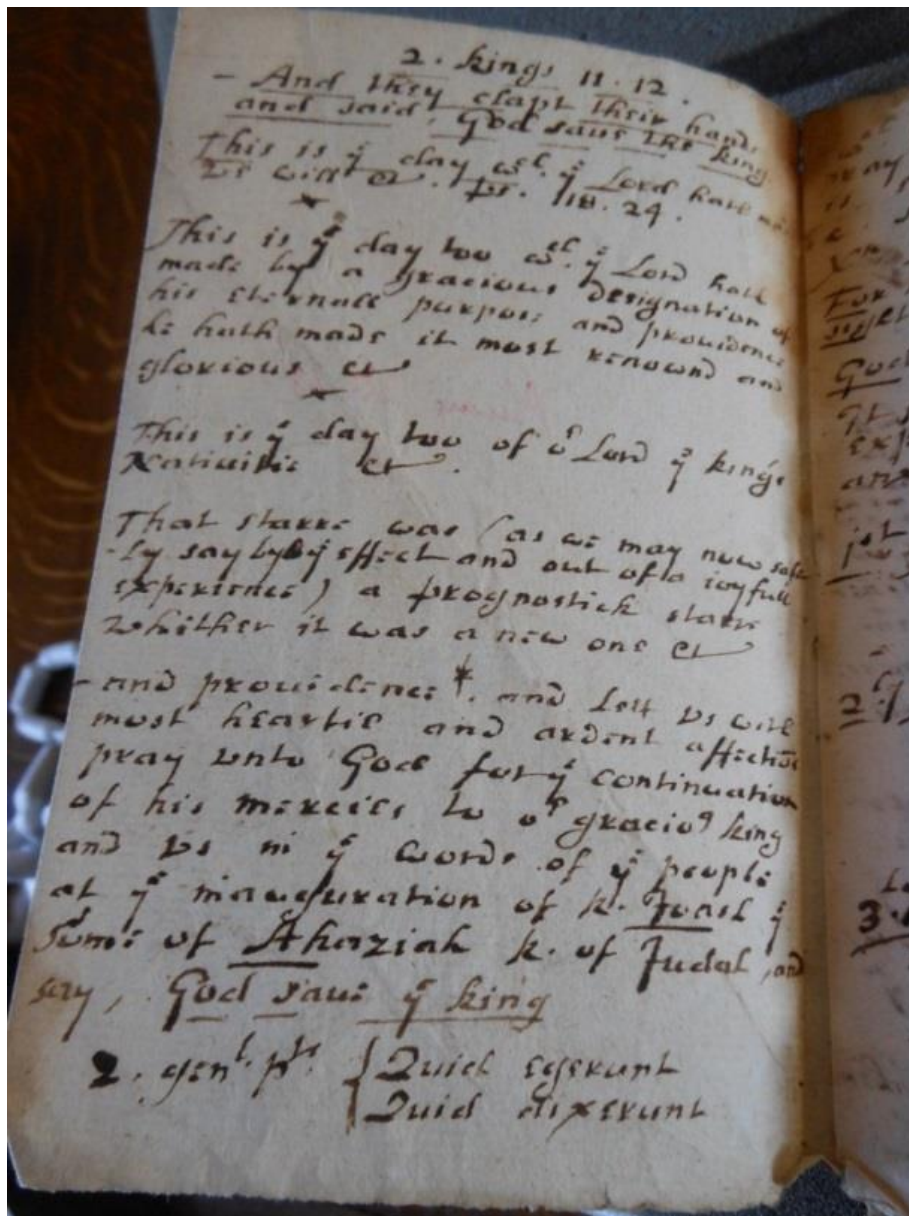 2. Kings 11. 12.
- And they clapt their hands
and said, God saue the King.
This is yͤ day wͨͪ. yͤ Lord hath
we will &. ps. 118. 24.
This is yͤ day too wͨͪ. yͤ Lord hath
made by a gracious designation of
his eternall purpose and prouidence
he hath made it most renownd and
glorious &
This is yͤ day too of oͬ Lord yͤ king's
Natiuitie &.
That starre was (as we may now safe
-ly say by yͤ effect and out of a ioyfull
experience) a prognostick starre
whither it was a new one &
- and prouidence *. and lett vs with
most heartie and ardent affectiōs
pray vnto God for yͤ continuation
of his mercies to oͬ gracioꝰ King
and vs in yͤ words of yͤ people
at yͤ inawguration of k. Joash yͤ
Sonne of Ahaziah k. of Judah, and
say, God saue yͤ king
2. genˡ. pᵗˢ. { Quid egerunt
Quid dixerunt
For
sight
God
It
Exp
and
2.
3.